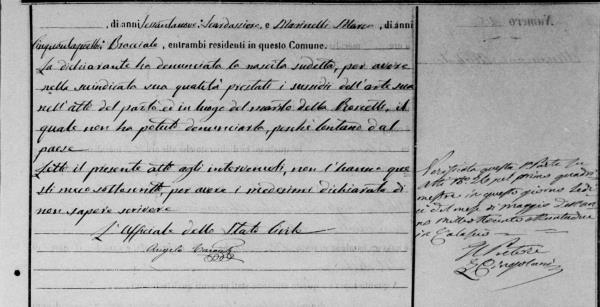 di anni Sessantanove Scardassiere, e Marinelli Marco, di anni
Cinquantaquattro Bracciale, entrambi residenti in questo Comune.
La dichiarante ha denunciato la nascita sudetta, per avere
nella suindicata sua qualità prestati i sussidii dell'arte sua
nell'atto del parto ed in luogo del marito della il
quale non ha potuto denunciarla, perchè lontano dal
paese
Letto il presente atto agli intervenuti, non l'hanno que
sti meco sottoscritto, per avere i medesimi dichiarato di
non sapere scrivere
L'Uffiziale dello Stato Civile
Angelo
Numero
Verificata questa Parte
atti nel primo quadri
mestre in questo giorno
ci del mese di Maggio dell'an
no mille ottocento ottantadue
in
Il Pretore